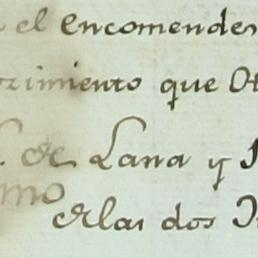 el encomendes
zimiento que Ot
de Lana y
mo
de las dos